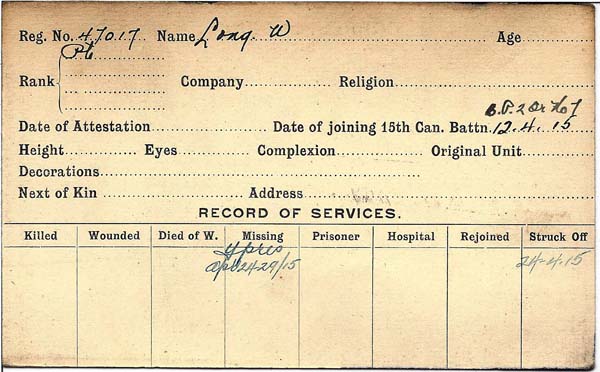 Reg. No. 47017 Name Long W Age
Pte
Rank Company Religion
Date of Attestation Date of joining 15th Can. Battn. 12.4.15
Height Eyes Complexion Original Unit
Decorations
Next of Kin Address
RECORD OF SERVICES.
Killed Wounded Died of W. Missing Prisoner Hospital Rejoined Struck Off
Ypres
Apl 24-29/15 24-4.15